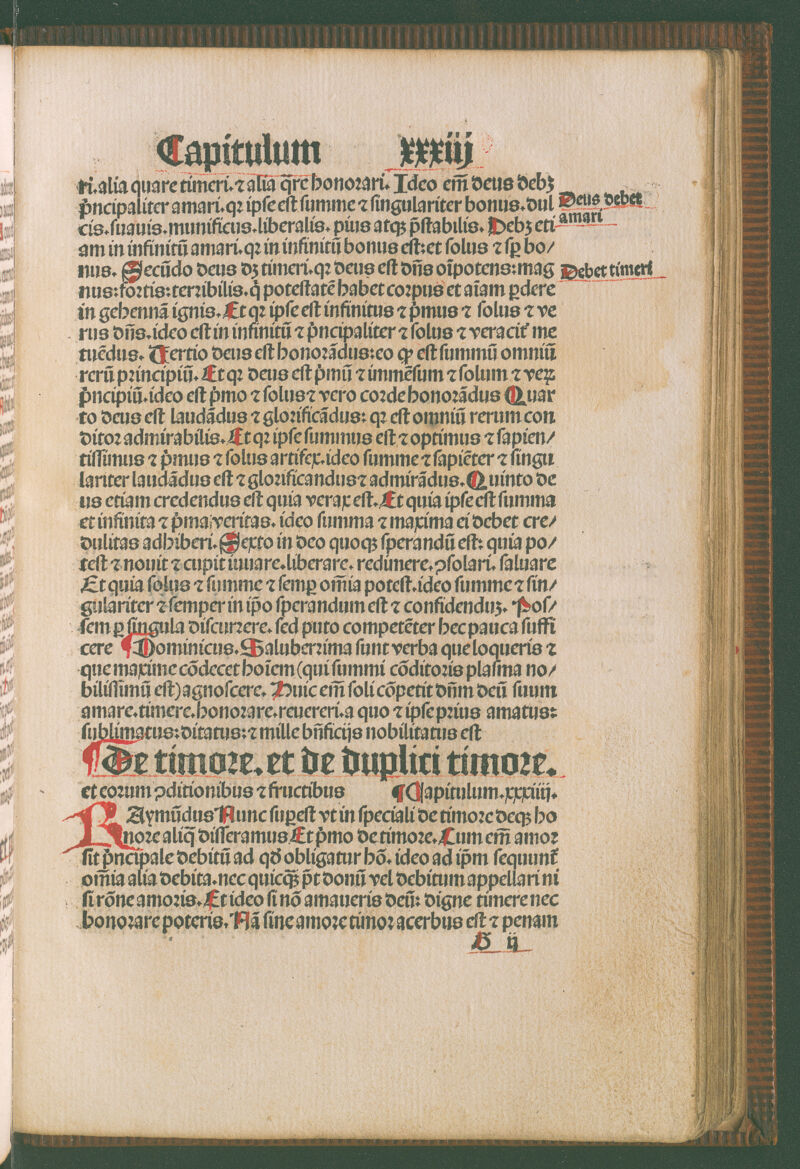 Capitulum xxxiij
ri. alia quare timeri. ⁊ alia q̄re honorari. Ideo em̄ deus debꝫ
p̄ncipaliter amari. qꝛ ipse est summe ⁊ singulariter bonus. dul
cis. suauis. munificus. liberalis. pius atqꝫ p̄stabilis. Debꝫ eti
am in infinitū amari. qꝛ in infinitū bonus est: et solus ⁊ sꝑ bo/
nus. Secūdo deus dꝫ timeri. qꝛ deus est dn̄s oīpotens: mag
nus: fortis: terribilis. q̇ potestatē habet corpus et aīam ꝑdere
in gehennā ignis. Et qꝛ ipse est infinitus ⁊ p̄mus ⁊ solus ⁊ ve
rus dn̄s. ideo est in infinitū ⁊ p̄ncipaliter ⁊ solus ⁊ veracit᷑ me
tuēdus. Tertio deus est honorādus: eo ꝙ est summū omniū
rerū principiū. Et qꝛ deus est p̄mū ⁊ immēsum ⁊ solum ⁊ veꝝ
p̄ncipiū. ideo est p̄mo ⁊ solus ⁊ vero corde honorādus Quar
to deus est laudādus ⁊ glorificādus: qꝛ est omniū rerum con
ditor admirabilis. Et qꝛ ipse summus est ⁊ optimus ⁊ sapien/
tissimus ⁊ p̄mus ⁊ solus artifex. ideo summe ⁊ sapiēter ⁊ singu
lariter laudādus est ⁊ glorificandus ⁊ admirādus. Quinto de
us etiam credendus est quia verax est. Et quia ipse est summa
et infinita ⁊ p̄ma veritas. ideo summa ⁊ maxima ei debet cre/
dulitas adhiberi. Sexto in deo quoqꝫ sperandū est: quia po/
test ⁊ nouit ⁊ cupit iuuare. liberare. redimere. ꝯsolari. saluare
Et quia solus ⁊ summe ⁊ semꝑ om̄ia potest. ideo summe ⁊ sin/
gulariter ⁊ semper in ip̄o sperandum est ⁊ confidenduꝫ. Pos/
sem ꝑ singula discurrere. sed puto competēter hec pauca suffi
cere ¶ Dominicus. Saluberrima sunt verba que loqueris ⁊
que maxime cōdecet hoīem (qui summi cōditoris plasma no/
bilissimū est) agnoscere. Huic em̄ soli cōpetit dn̄m deū suum
amare. timere. honorare. reuereri. a quo ⁊ ipse prius amatus:
sublimatus: ditatus: ⁊ mille bn̄ficijs nobilitatus est
¶ De timore. et de duplici timore.
et eorum ꝯditionibus ⁊ fructibus ¶ Capitulum. xxxiiij.
RAymūdus Nunc suꝑest vt in speciali de timore deqꝫ ho
nore aliq̄ disseramus Et p̄mo de timore. Cum em̄ amor
sit p̄ncipale debitū ad qd̄ obligatur hō. ideo ad ip̄m sequunt᷑
om̄ia alia debita. nec quicq̄ꝫ p̄t donū vel debitum appellari ni
si rōne amoris. Et ideo si nō amaueris deū: digne timere nec
honorare poteris. Nā sine amore timor acerbus est ⁊ penam
B ij
Deus debet
amari
Debet timeri